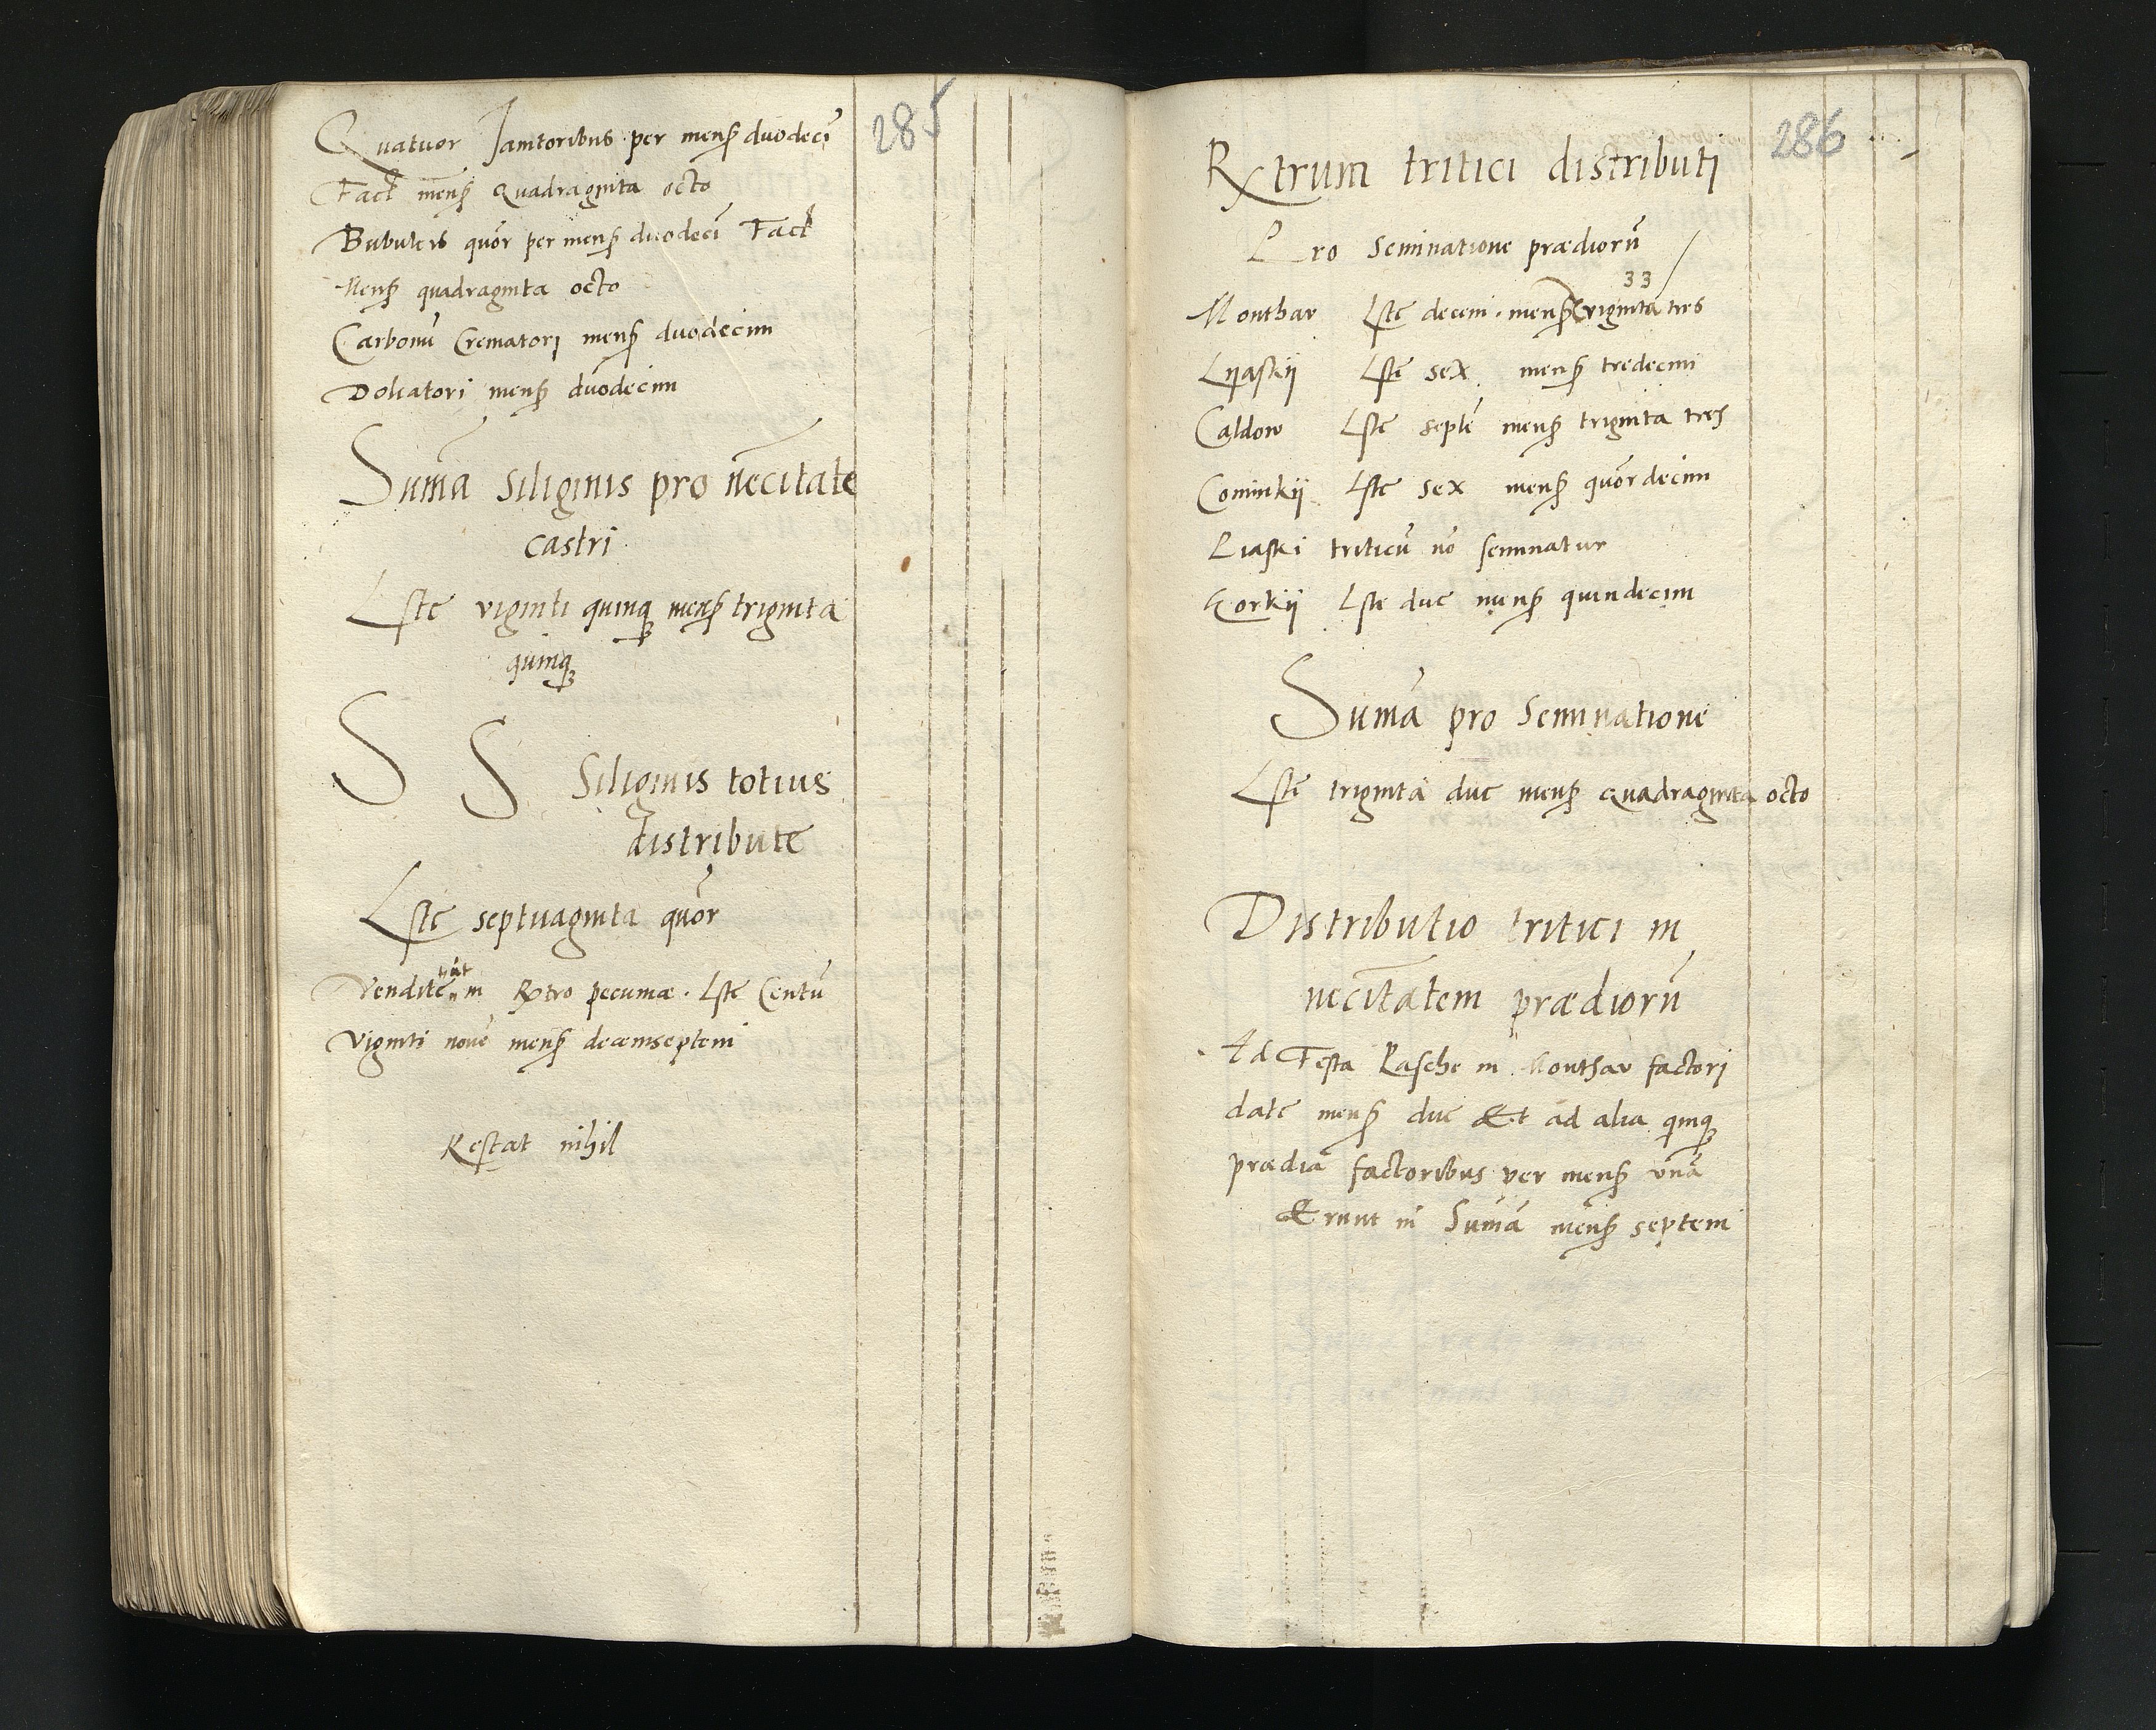 285
Quatuor Janitoribus per mens duodeci
Fact mens Quadraginta octo
Bubulcis quor per mens duodeci Fact
Mens quadraginta octo
Carbonū Crematori mens duodecim
Doleatori mens duodecim
Sum̄a siliginis pro necitate
castri
Lste viginti quinq mens triginta
quinq
S S Siliginis totius
distribute
Lste septuaginta quor
Vendite ut in Rxtro pecuniæ. Lste Centū
Viginti novē mens decemseptem
Restat nihil
286
Rxtrum tritici distributi
Pro Seminatione prædiorū
33
Monthav Lste decem. mens triginta tres
Lyaskij Lste sex mens tredecim
Caldow Lste septē mens triginta tres
Cominkij Lste sex mens quordecim
Piaski triticū nō seminatur
Gorkij Lste due mens quindecim
Sum̄a pro Seminatione
Lste triginta due mens quadraginta octo
Distributio tritici in
necitatem prædiorū
Ad Festa Pasche in Monthav factori
date mens due Et ad alia qinq
prædia factoribus per mens unā
Erunt in Sum̄a mens septem